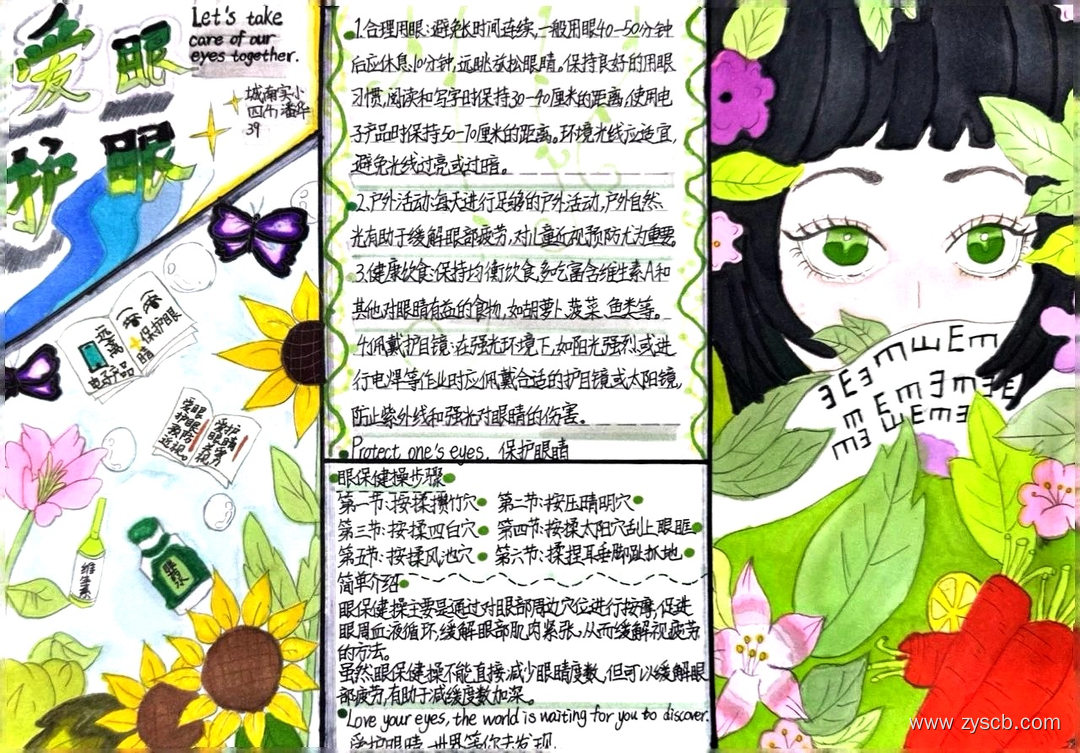 爱眼
护眼
Let's take
care of our
eyes together.
城南实小
39
远离
电子产品
保护眼
睛
爱眼
护眼
预防
近视
爱护
眼睛
维生素
1.合理用眼:避免长时间连续,一般用眼40-50分钟
后应休息10分钟,远眺放松眼睛。保持良好的用眼
习惯,阅读和写字时保持30-40厘米的距离,使用电
子产品时保持50-70厘米的距离。环境光线应适宜,
避免光线过亮或过暗。
2.户外活动:每天进行足够的户外活动,户外自然
光有助于缓解眼部疲劳,对儿童近视预防尤为重要
3.健康饮食:保持均衡饮食,多吃富含维生素A和
其他对眼睛有益的食物,如胡萝卜、菠菜、鱼类等。
4.佩戴护目镜:在强光环境下,如阳光强烈或进
行电焊等作业时应佩戴合适的护目镜或太阳镜,
防止紫外线和强光对眼睛的伤害。
Protect one's eyes. 保护眼睛
眼保健操步骤
第一节:按揉攒竹穴 第二节:按压睛明穴
第三节:按揉四白穴 第四节:按揉太阳穴刮上眼眶
第五节:按揉风池穴 第六节:揉捏耳垂脚趾抓地
简单介绍
眼保健操主要是通过对眼部周边穴位进行按摩,促进
眼周血液循环,缓解眼部肌肉紧张。从而缓解视疲劳
的方法。
虽然眼保健操不能直接减少眼睛度数,但可以缓解眼
部疲劳,有助于减缓度数加深。
Love your eyes, the world is waiting for you to discover.
爱护眼睛,世界等你去发现.
E E E m E m
m E m E m E E
m E E m E
www.zyscb.com